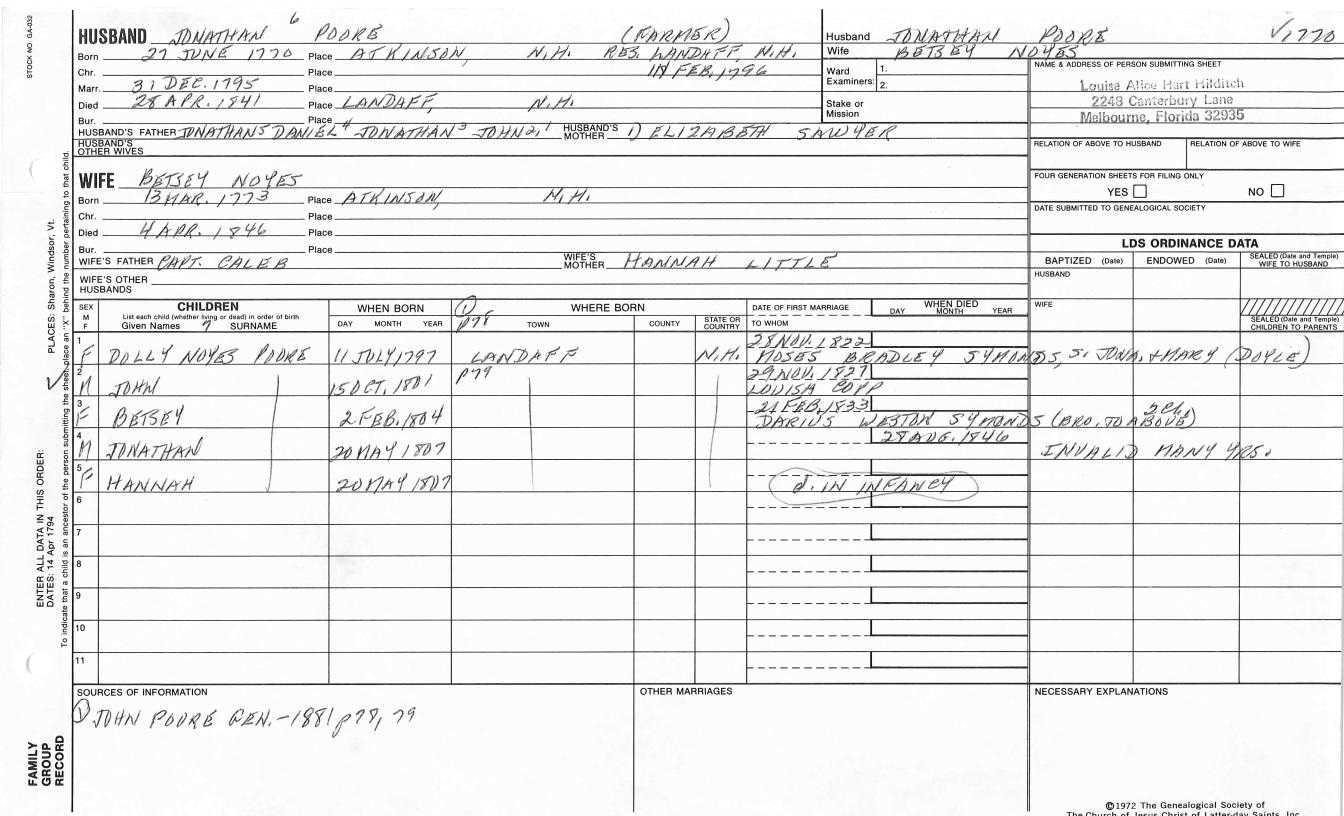 STOCK NO. GA-032
HUSBAND JONATHAN 6 POORE (FARMER)
Born 27 JUNE 1770 Place ATKINSON, N.H. RES. LANDAFF, N.H.
Chr. Place IN FEB. 1796
Marr. 31 DEC. 1795 Place
Died 28 APR. 1841 Place LANDAFF, N.H.
Bur. Place
HUSBAND'S FATHER JONATHAN5 DANIEL4 JONATHAN3 JOHN2,1 HUSBAND'S MOTHER 1) ELIZABETH SAWYER
HUSBAND'S OTHER WIVES
Husband JONATHAN POORE √1770
Wife BETSEY NOYES
Ward Examiners: 1.
2.
Stake or Mission
NAME & ADDRESS OF PERSON SUBMITTING SHEET
Louisa Alice Hart Hilditch
2248 Canterbury Lane
Melbourne, Florida 32935
RELATION OF ABOVE TO HUSBAND RELATION OF ABOVE TO WIFE
FOUR GENERATION SHEETS FOR FILING ONLY
YES NO
DATE SUBMITTED TO GENEALOGICAL SOCIETY
WIFE BETSEY NOYES
Born 13 MAR. 1773 Place ATKINSON, N.H.
Chr. Place
Died 4 APR. 1846 Place
Bur. Place
WIFE'S FATHER CAPT. CALEB WIFE'S MOTHER HANNAH LITTLE
WIFE'S OTHER HUSBANDS
LDS ORDINANCE DATA
BAPTIZED (Date) ENDOWED (Date) SEALED (Date and Temple) WIFE TO HUSBAND
HUSBAND
WIFE
SEALED (Date and Temple) CHILDREN TO PARENTS
SEX M F CHILDREN
List each child (whether living or dead) in order of birth
Given Names 7 SURNAME
WHEN BORN
DAY MONTH YEAR
① p78 WHERE BORN
TOWN COUNTY STATE OR COUNTRY
DATE OF FIRST MARRIAGE
TO WHOM
WHEN DIED
DAY MONTH YEAR
28 NOV. 1822
1 F DOLLY NOYES POORE 11 JULY 1797 LANDAFF N.H. MOSES BRADLEY SYMONDS, s. JONA. & MARY (DOYLE)
p79 29 NOV. 1827
2 M JOHN 15 OCT. 1801 LOUISA COPP
21 FEB. 1833 2 ch.
3 F BETSEY 2 FEB. 1804 DARIUS WESTON SYMONDS (BRO. TO ABOVE)
28 AUG. 1846
4 M JONATHAN 20 MAY 1807 INVALID MANY YRS.
5 F HANNAH 20 MAY 1807 d. IN INFANCY
6
7
8
9
10
11
SOURCES OF INFORMATION
① JOHN POORE GEN. - 1881 p78, 79
OTHER MARRIAGES
NECESSARY EXPLANATIONS
©1972 The Genealogical Society of
The Church of Jesus Christ of Latter-day Saints, Inc.
PLACES: Sharon, Windsor, Vt.
ENTER ALL DATA IN THIS ORDER:
DATES: 14 Apr 1794
To indicate that a child is an ancestor of the person submitting the sheet, place an "X" behind the number pertaining to that child.
FAMILY
GROUP
RECORD